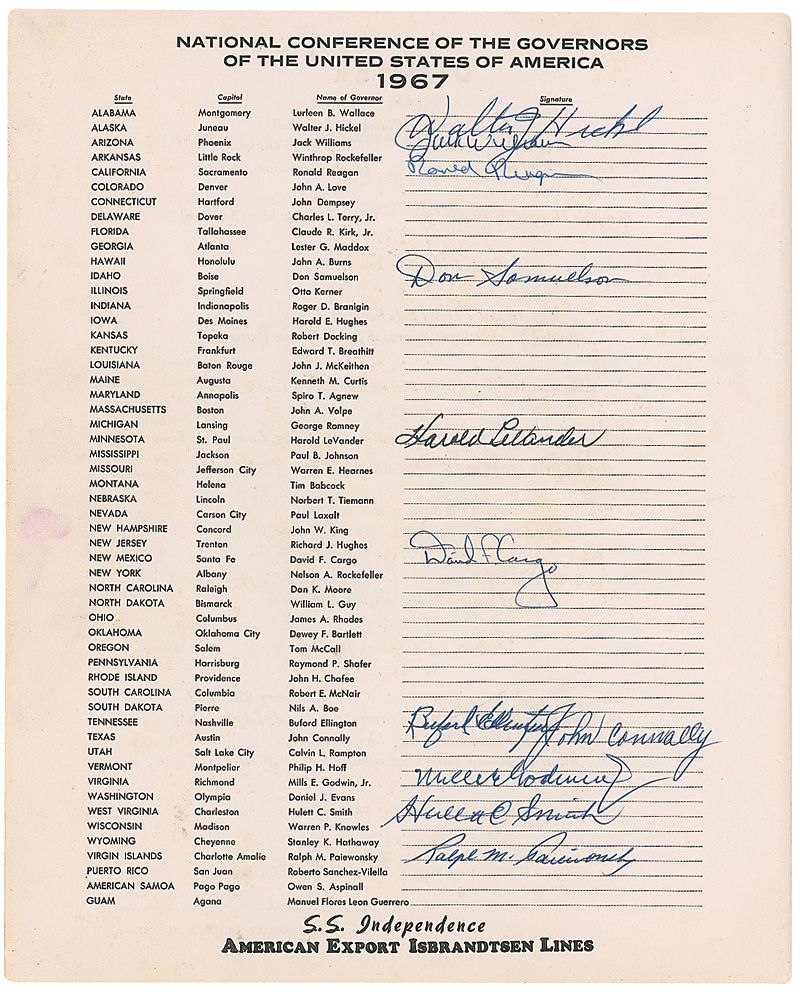 NATIONAL CONFERENCE OF THE GOVERNORS
OF THE UNITED STATES OF AMERICA
1967
State Capitol Name of Governor Signature
ALABAMA Montgomery Lurleen B. Wallace
ALASKA Juneau Walter J. Hickel Walter J Hickel
ARIZONA Phoenix Jack Williams Jack Williams
ARKANSAS Little Rock Winthrop Rockefeller
CALIFORNIA Sacramento Ronald Reagan Ronald Reagan
COLORADO Denver John A. Love
CONNECTICUT Hartford John Dempsey
DELAWARE Dover Charles L. Terry, Jr.
FLORIDA Tallahassee Claude R. Kirk, Jr.
GEORGIA Atlanta Lester G. Maddox
HAWAII Honolulu John A. Burns
IDAHO Boise Don Samuelson Don Samuelson
ILLINOIS Springfield Otto Kerner
INDIANA Indianapolis Roger D. Branigin
IOWA Des Moines Harold E. Hughes
KANSAS Topeka Robert Docking
KENTUCKY Frankfurt Edward T. Breathitt
LOUISIANA Baton Rouge John J. McKeithon
MAINE Augusta Kenneth M. Curtis
MARYLAND Annapolis Spiro T. Agnew
MASSACHUSETTS Boston John A. Volpe
MICHIGAN Lansing George Romney
MINNESOTA St. Paul Harold LeVander Harold LeVander
MISSISSIPPI Jackson Paul B. Johnson
MISSOURI Jefferson City Warren E. Hearnes
MONTANA Helena Tim Babcock
NEBRASKA Lincoln Norbert T. Tiemann
NEVADA Carson City Paul Laxalt
NEW HAMPSHIRE Concord John W. King
NEW JERSEY Trenton Richard J. Hughes
NEW MEXICO Santa Fe David F. Cargo David F. Cargo
NEW YORK Albany Nelson A. Rockefeller
NORTH CAROLINA Raleigh Dan K. Moore
NORTH DAKOTA Bismarck William L. Guy
OHIO Columbus James A. Rhodes
OKLAHOMA Oklahoma City Dewey F. Bartlett
OREGON Salem Tom McCall
PENNSYLVANIA Harrisburg Raymond P. Shafer
RHODE ISLAND Providence John H. Chafee
SOUTH CAROLINA Columbia Robert E. McNair
SOUTH DAKOTA Pierre Nils A. Boe
TENNESSEE Nashville Buford Ellington Buford Ellington
TEXAS Austin John Connally John Connally
UTAH Salt Lake City Calvin L. Rampton
VERMONT Montpelier Philip H. Hoff
VIRGINIA Richmond Mills E. Godwin, Jr. Mills E Godwin Jr
WASHINGTON Olympia Daniel J. Evans
WEST VIRGINIA Charleston Hulett C. Smith Hulett C Smith
WISCONSIN Madison Warren P. Knowles
WYOMING Cheyenne Stanley K. Hathaway
VIRGIN ISLANDS Charlotte Amalie Ralph M. Paiewonsky Ralph M. Paiewonsky
PUERTO RICO San Juan Roberto Sanchez-Vilella
AMERICAN SAMOA Pago Pago Owen S. Aspinall
GUAM Agana Manuel Flores Leon Guerrero
S.S. Independence
AMERICAN EXPORT ISBRANDTSEN LINES